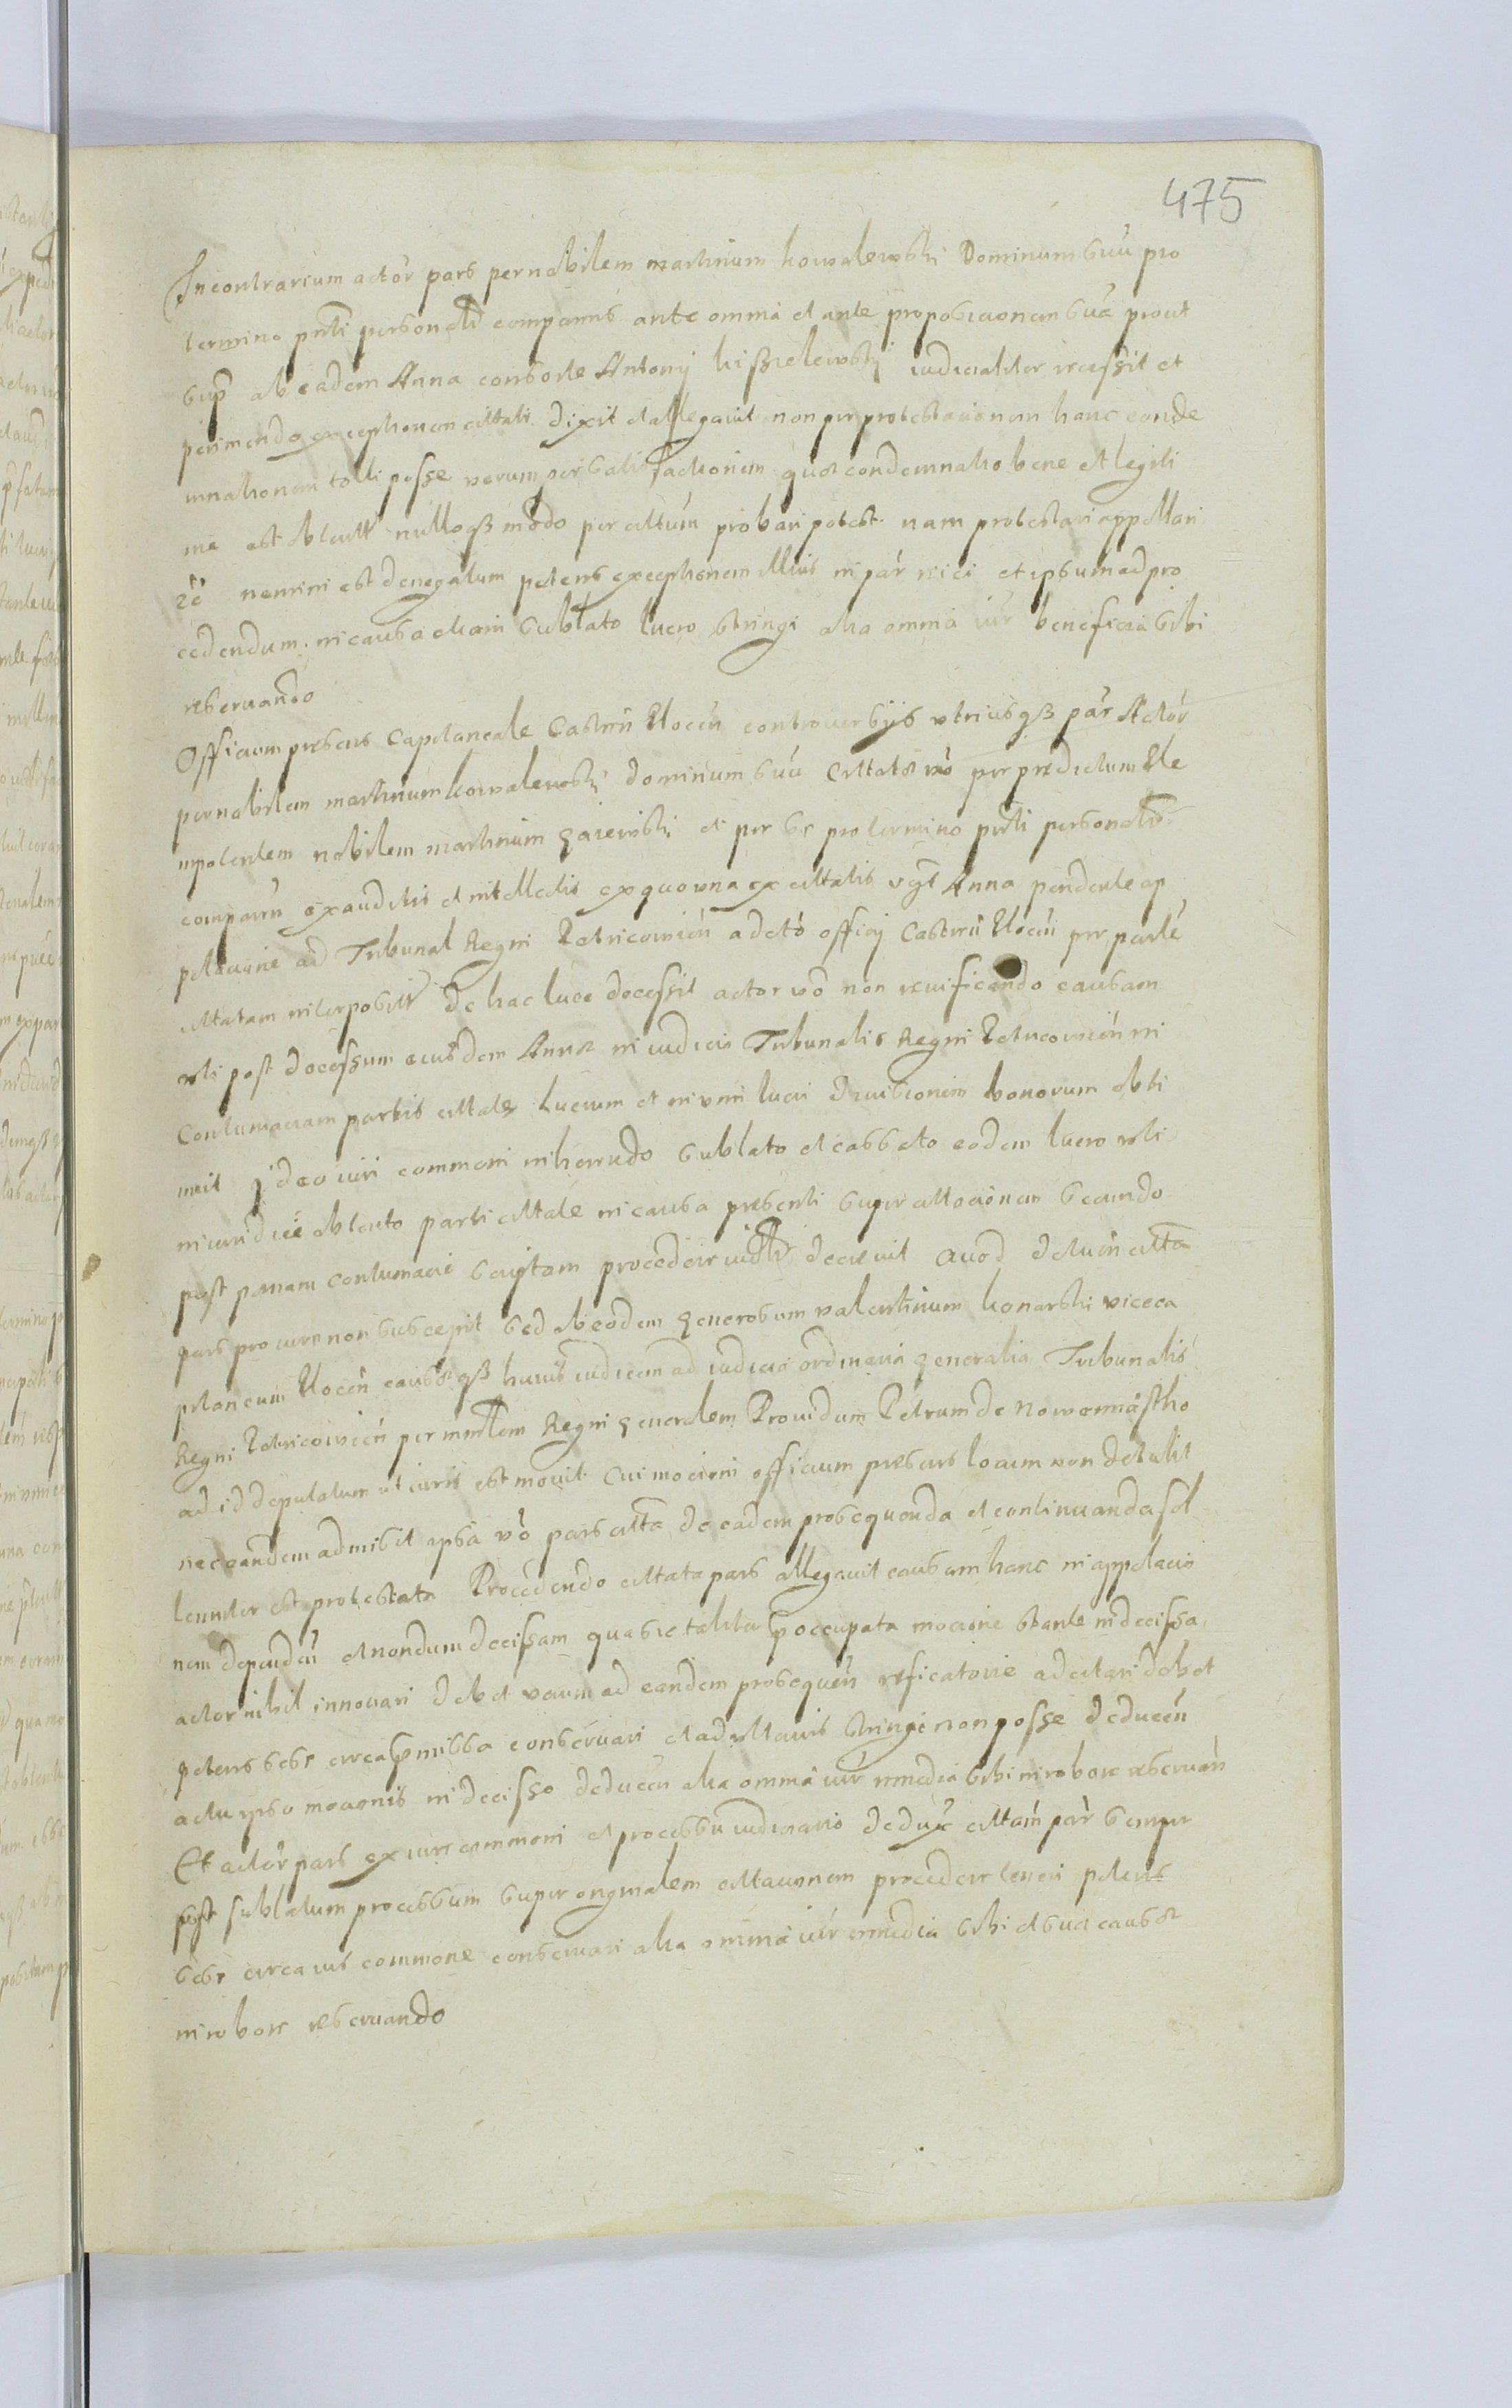 475
In contrarium actor pars per nobilem martinum kowalewski Dominum suu pro
termino pnti personalr comparens ante omnia et ante propositionem sua prout
sup ab eadem Anna consorte Antonij kisszelewskj iudicialiter recessit et
perimendo exceptionem cittati dixit et allegavit non per protestationem hanc conde
mnationem tolli posse verum per satisfactionem quae condemnatio bene et legiti
me est obtenta nullo qz modo per cittatum probari potest nam protestari appellari
nemini est denegatum petens exceptionem illius in par reici et ipsum ad pro
cedendum in causa etiam sublato lucro stringi alia omnia iur beneficia sibi
reservando
Officium presens Capitaneale Castren Plocen controversijs utriusqz par Actor
per nobilem martinum kowalewskj dominum suu Cittatae vo per predictum Ple
nipotentem nobilem martinum gaiewski et per se pro termino pnti personalr
comparen exauditis et intellectis ex quo una ex cittatis vzt Anna pendente ap
pelatione ad Tribunal Regni Petricovien a dcto officij Castren Plocen per parte
cittatam interposita De hac luce decessit actor vo non reuificando causam
post decessum eiusdem Annae in iudicio Tribunalis Regni Petricovien in
Contumatiam partis cittate Lucrum et in vim lucri Divisionem bonorum obti
nuit Ideo iuri communi inherendo sublato et cassato eodem lucro uti
iniuridice obtento parti cittate in causa presenti super cittationem secundo
post penam contumacie scriptam procedere decrevit Quod decretum citta
pars pro iure non suscepit sed ab eodem generosum valentinum konarski viceca
pitaneum Plocen causae qz huius iudicem ad iudicia ordinaria generalia Tribunalis
Regni Petricovien per mnstrem Regni generalem Providum Petrum de Nowemiastho
ad id deputatum ut iuris est movit Cui motioni officium presens locum non detulit
nec eandem admisit ipsa vo pars citta de eadem prosequenda et continuanda sol
leniter est protestata Procedendo cittata pars allegavit causam hanc in appelatio
nem dependen et nondum decissam qua sic taliter occupata motione stante indecissa
actor nihil innovari debet verum ad eandem prosequen reficatorie adcitari debet
petens sese circa pmissa conservari et ad ulterius stringi non posse deducen
actu ipso motionis indecisso deducen alia omnia iur remedia sibi in robore reservan
Et actor pars ex iure commoni et processu iudiciario dedux cittam par semper
post sublatum processum super originalem cittationem procedere teneri petens
sese circa ius commone conservari alia omnia iur remedia sibi et sua causae
in robore reservando